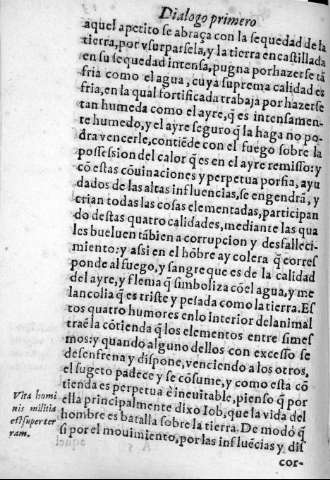 Dialogo primero
aquel apetito se abraça con la sequedad de la
tierra, por vsurparsela, y la tierra encastillada
en su sequedad intensa, pugna por hazer se tã
fria como el agua, cuya suprema calidad es
fria, en la qual fortificada trabaja por hazer se
tan humeda como el ayre, q̃ es intensamen-
te humedo, y el ayre seguro q̃ la haga no po-
dra vencerle, contiẽde con el fuego sobre la
possession del calor q̃ es en el ayre remisso: y
cõ estas cõuinaciones y perpetua porfia, ayu
dados de las altas influencias, se engendrã, y
crian todas las cosas elementadas, participan
do destas quatro calidades, mediante las qua
les bueluen tãbien a corrupcion y desfalleci-
miento: y assi en el hõbre ay colera q̃ corres
ponde al fuego, y sangre que es de la calidad
del ayre, y flema q̃ simboliza cõel agua, y me
lancolia q̃ es triste y pesada como la tierra. Es
tos quatro humores enlo interior del animal
traẽ la cõtienda q̃ los elementos entre si mes
mos: y quando alguno dellos con excesso se
desenfrena y dispone, venciendo a los otros,
el sugeto padece y se cõsume, y como esta cõ
tienda es perpetua è ineuitable, pienso q̃ por
ella principalmente dixo Iob, que la vida del
hombre es batalla sobre la tierra. De modo q̃
si por el mouimiento, por las influẽcias y dis
cor-
Vita homi
nis militia
est super ter
ram.